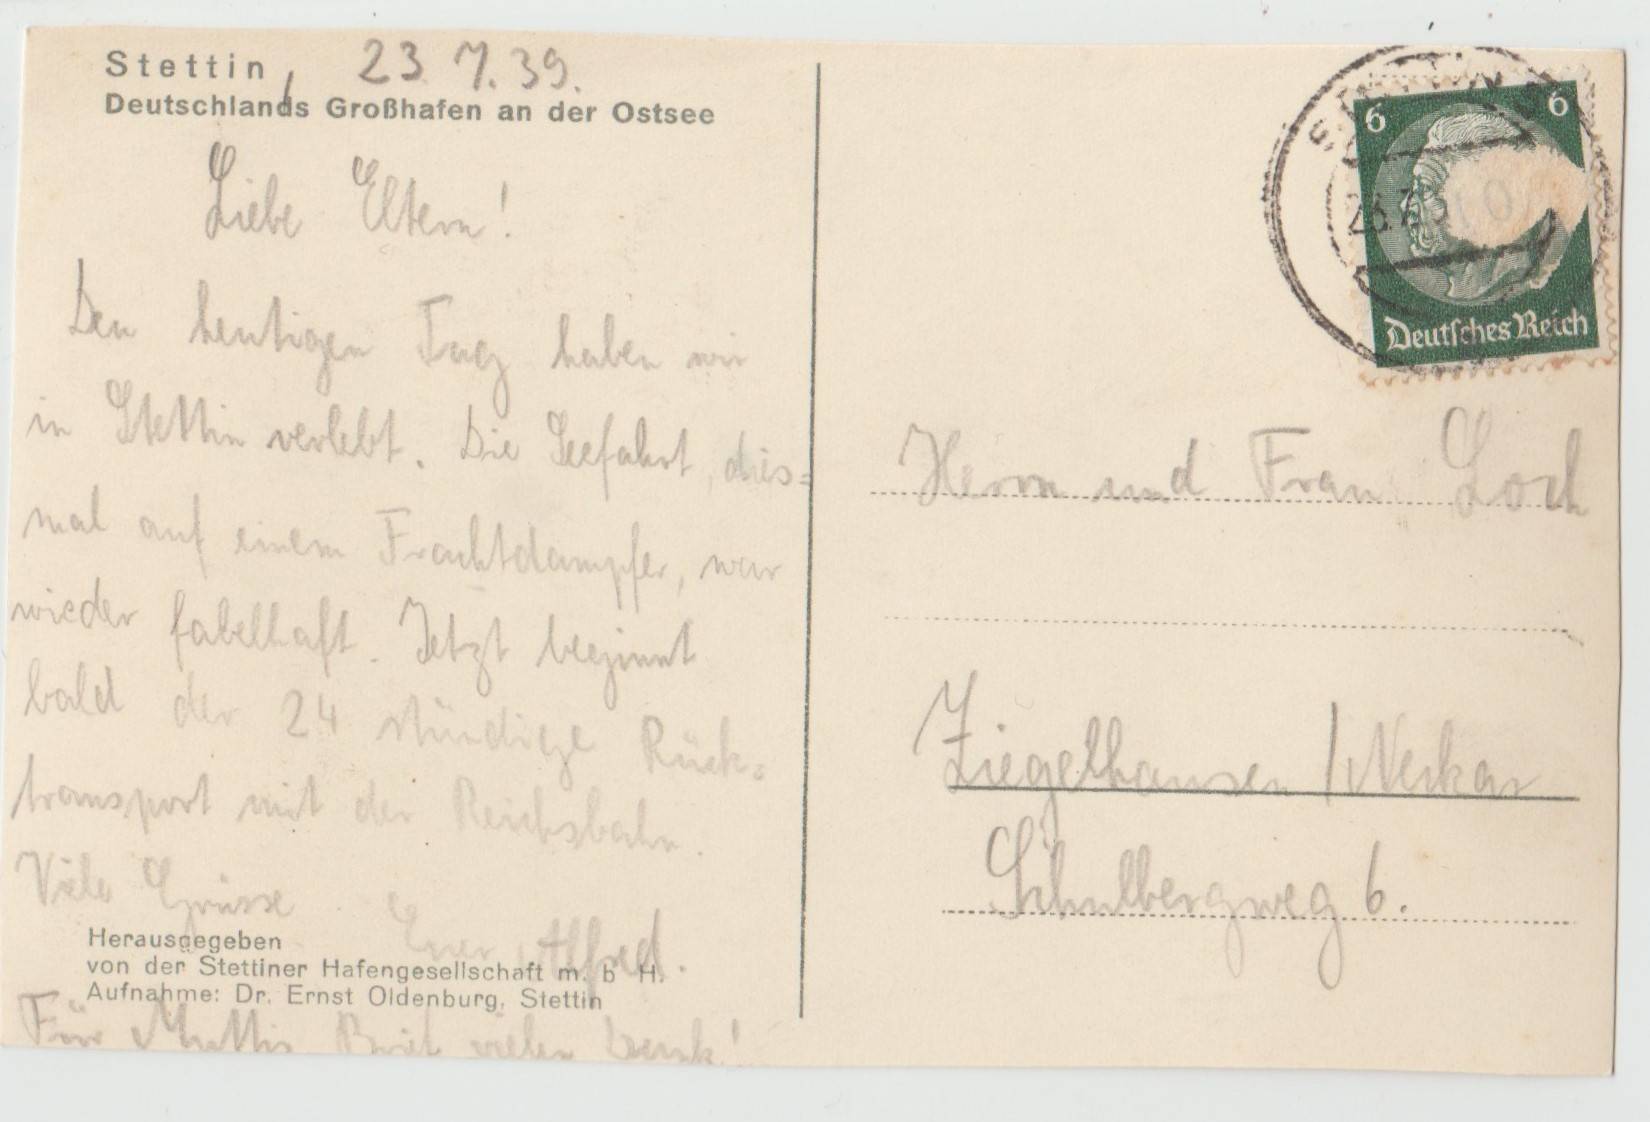 Stettin, 23.7.39.
Deutschlands Großhafen an der Ostsee
Liebe Eltern!
Den heutigen Tag haben wir
in Stettin verlebt. Die Seefahrt, dies=
mal auf einem Frachtdampfer, war
wieder fabelhaft. Jetzt beginnt
bald der 24 stündige Rück=
transport mit der Reichsbahn.
Viele Grüsse Euer Alfred.
Herausgegeben
von der Stettiner Hafengesellschaft m. b H.
Aufnahme: Dr. Ernst Oldenburg, Stettin
Für Muttis Brief vielen Dank!
6 6
23.7.
Deutsches Reich
Herrn und Frau Loch
Ziegelhausen / Neckar
Schulbergweg 6.